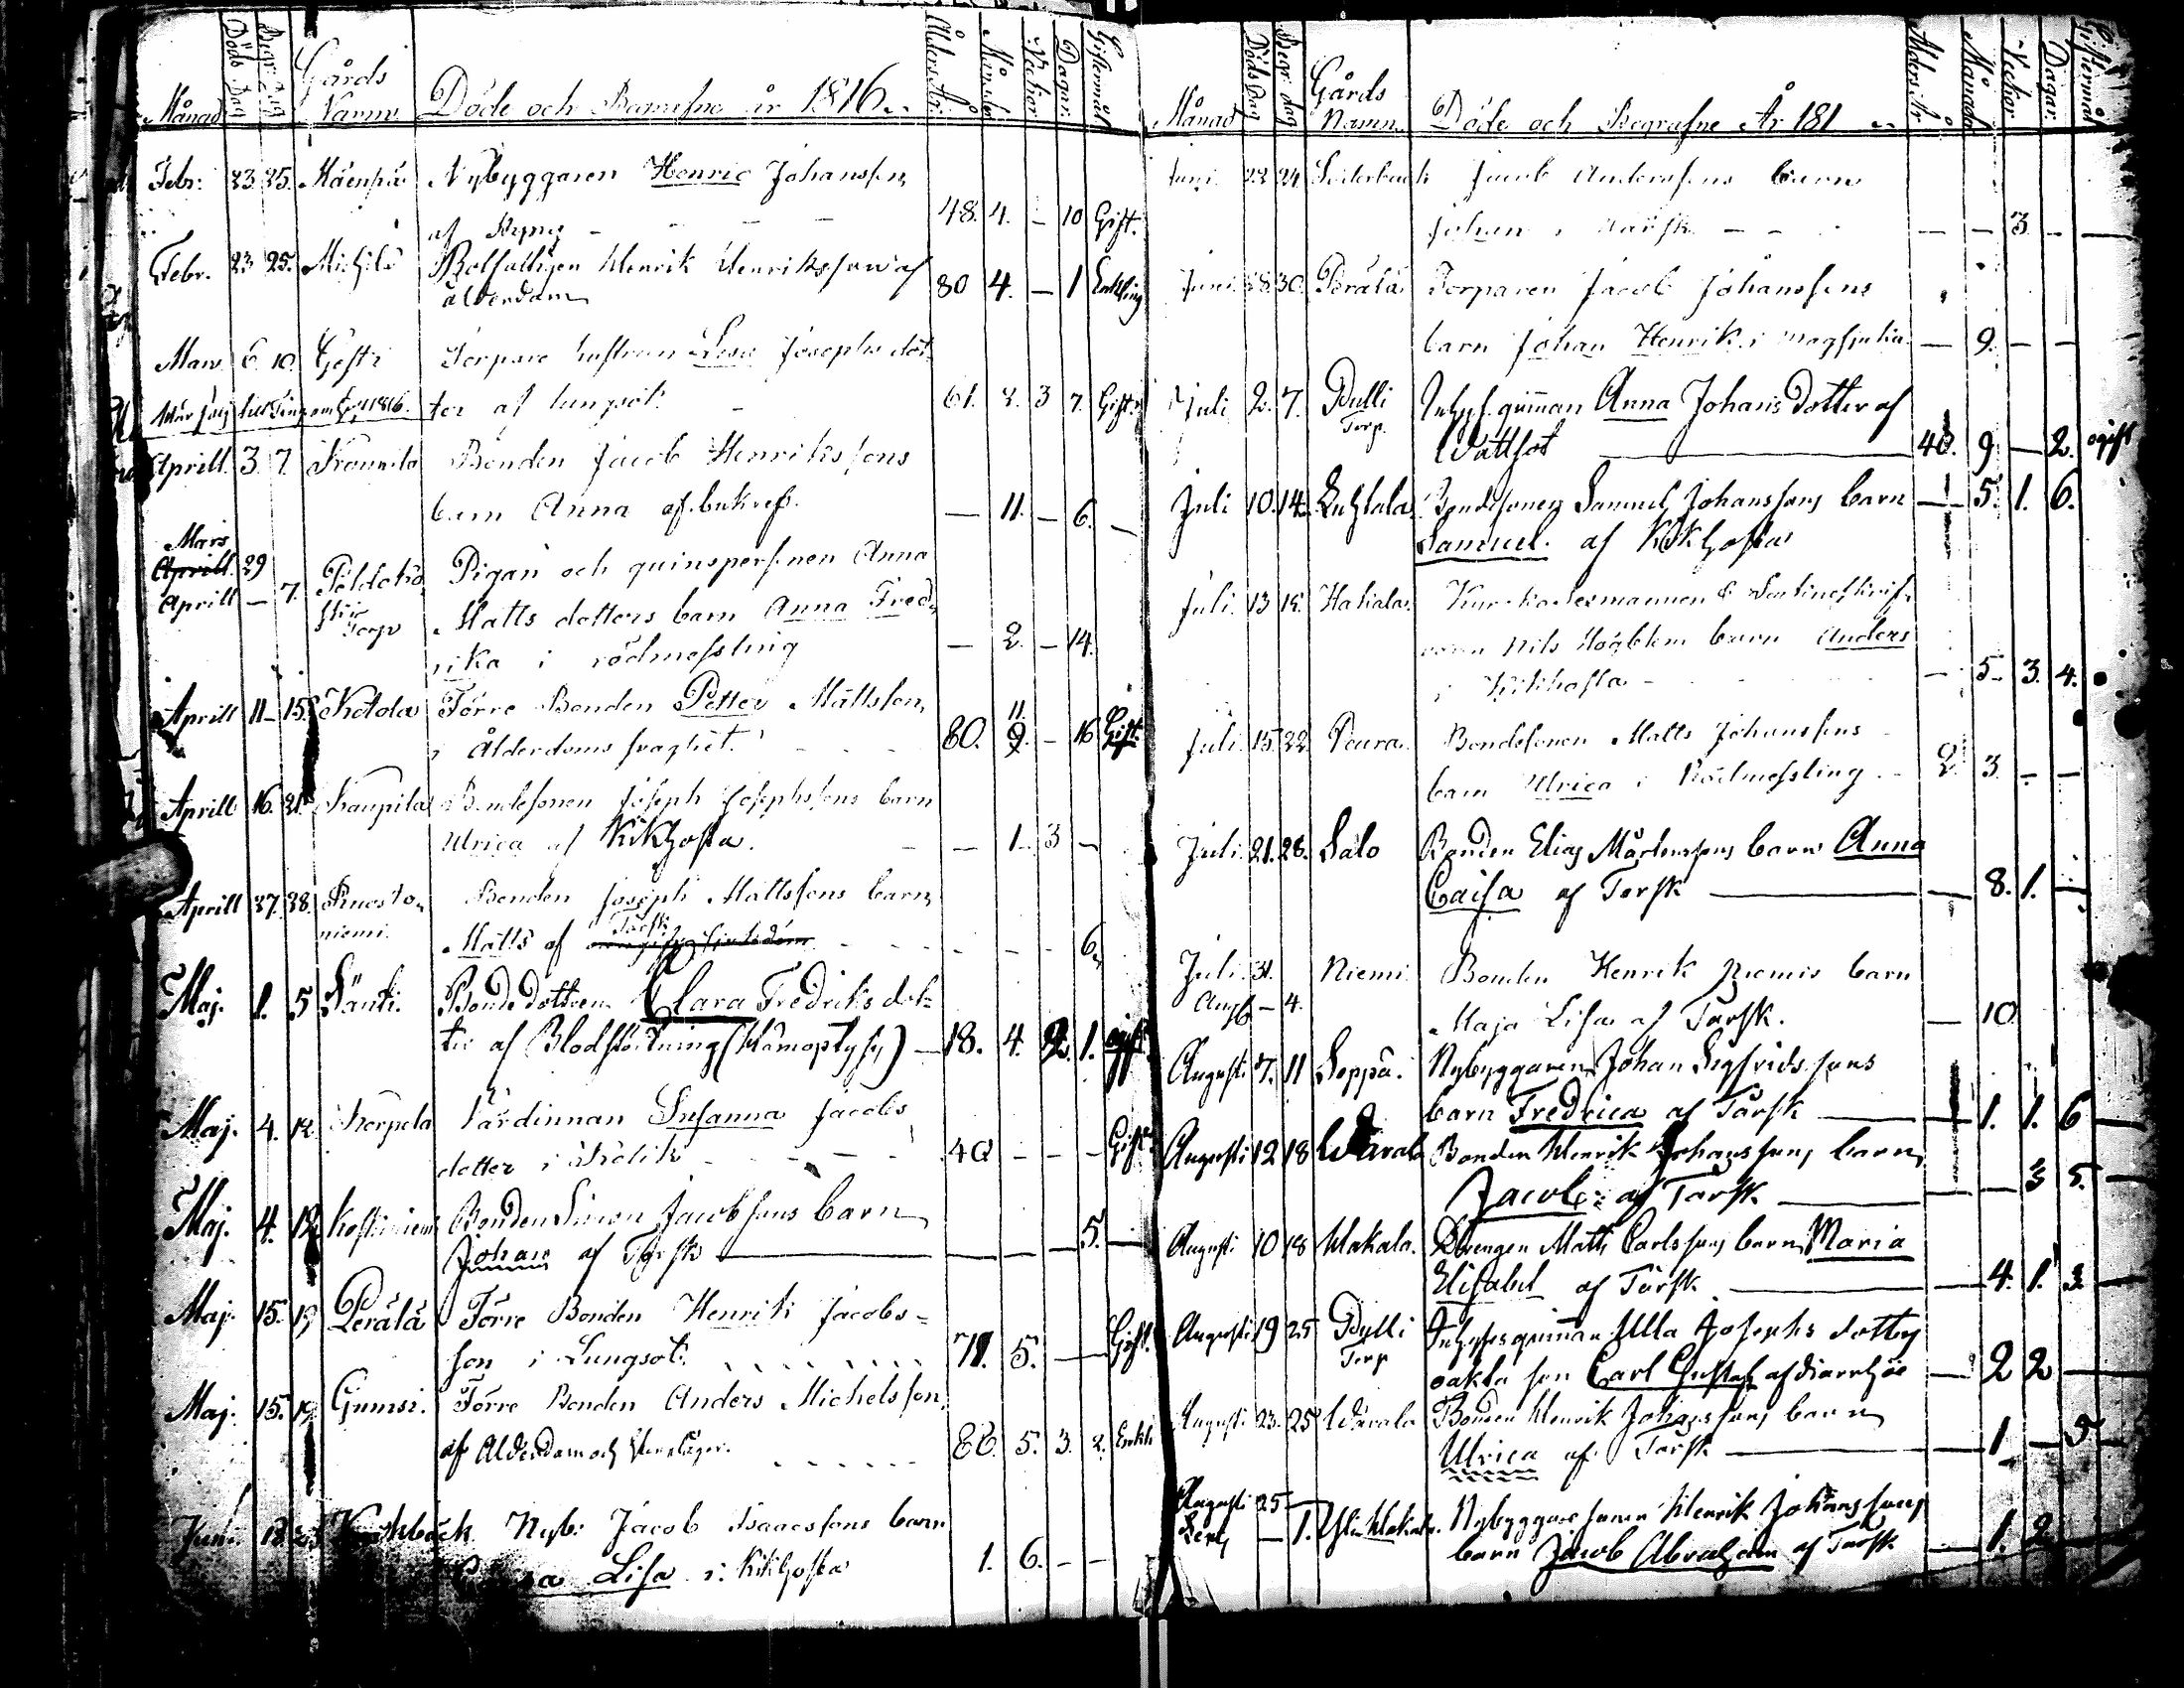 Månad Döds Dag Begr: dag Gårds Namn Döde och Begrafne år 1816. Ålders År. Månader Veckor Dagar. Giftermål
Febr: 23 25. Mäenpää Nybyggaren Henric Johansson
af 48. 4. — 10 Gift.
Febr. 23 25. Michilä Henrik Henriksson af
ålderdom 80 4. — 1 Enkling
Mars 6 10. Torpare hustrun Lisa Josephs dot-
ter af lungsot. 61. 8. 3 7. Gift.
Aprill. 3. 7. Bonden Jacob Henrikssons
barn Anna af — 11. — 6. —
Mars
Aprill. 29
Aprill — 7. Torp Pigan och qvinspersonen Anna
Matts dotters barn Anna Fred-
rika i rödmessling — 2. — 14.
Aprill 11 — 15. Ketola Förre Bonden Petter Mattsson
i Ålderdoms svaghet. 80. 11. 9. — 16 Gift.
Aprill 16. 21. Kaupila Bondesonen Joseph Josephssons barn
Ulrica af Kikhosta. — 1. 3 —
Aprill 27. 28. Ruosto-
niemi. Bonden Joseph Mattssons barn
Matts af Torsk — — — 6.
Maj. 1. 5 Sänti. Bondedottren Clara Fredriks dot-
ter af Blodstörtning (Hämoptysis) — 18. 4. 2. 1. ogift
Maj. 4. 12. Korpela Värdinnan Susanna Jacobs
dotter i Kolik 40 — — — Gift
Maj. 4. 12. Koskiniemi Bonden Simon Jacobsons barn
Johan af Torsk — — — 5. —
Maj. 15. 19 Perälä Förre Bonden Henrik Jacobs-
son i Lungsot. 71. 5. — — Gift.
Maj. 15. 19. Gumsi. Förre Bonden Anders Michelsson
af Ålderdom och 5. 3. 2. Enkl.
Juni. Nyb: Jacob Isaacssons barn
Lisa i Kikhosta 1. 6. — —
Månad Döds Dag Begr. dag Gårds Namn. Döde och Begrafne År 181 Ålders År Månader Veckor Dagar. Giftermål
Juni. 22 24 Söderback Jacob Anderssons barn
Johan i Torsk — — — 3. — —
Juni 28. 30. Perälä Torparen Jacob Johanssons
barn Johan Henrik i magsjuka. — 9. — —
Juli 2. 7. Pulli
Torp. Inhys. quinnan Anna Johans dotter af
Wattsot 40. 9 — 2. ogift
Juli 10. 14. Luhtala Bondesonen Samuel Johanssons barn — 5. 1. 6.
Samuel. af Kikhosta
Juli. 13 Hakala
Nils barn Anders
i Kikhosta — 5. 3. 4.
Juli. 15. 22 Peura. Bondesonen Matts Johanssons
barn Ulrica i Rödmessling. 2. 3. — —
Juli. 21. 28. Salo Bonden Elias Mårtenssons barn Anna
Caisa af Torsk — 8. 1. —
Juli 31.
Aug — 4. Niemi Bonden Henrik Niemis barn
Maja Lisa af Torsk. — 10
Augusti 7. 11 Seppä. Nybyggaren Johan Sigfridssons
barn Fredrica af Torsk — 1. 1. 6 —
Augusti 12 18 Wärälä Bonden Henrik Johanssons barn
Jacob: af Torsk — — 3 5. —
Augusti 10 18 Hakala. Drengen Matts Carlssons barn Maria
Elisabet af Torsk. — 4. 1. 3 —
Augusti 19 25 Pylli
Torp Inhyses quinnan Ulla Josephs dotters
oäkta son Carl Gustaf af diarrhöe — 2 2 —
Augusti 23. 25 Wärälä Bonden Henrik Johanssons barn
Ulrica af Torsk — 1 — 5 —
Augusti 25 —
— 1. Yli Hakala. Nybyggaresonen Henrik Johanssons
barn Jacob Abraham af Torsk — 1. 2